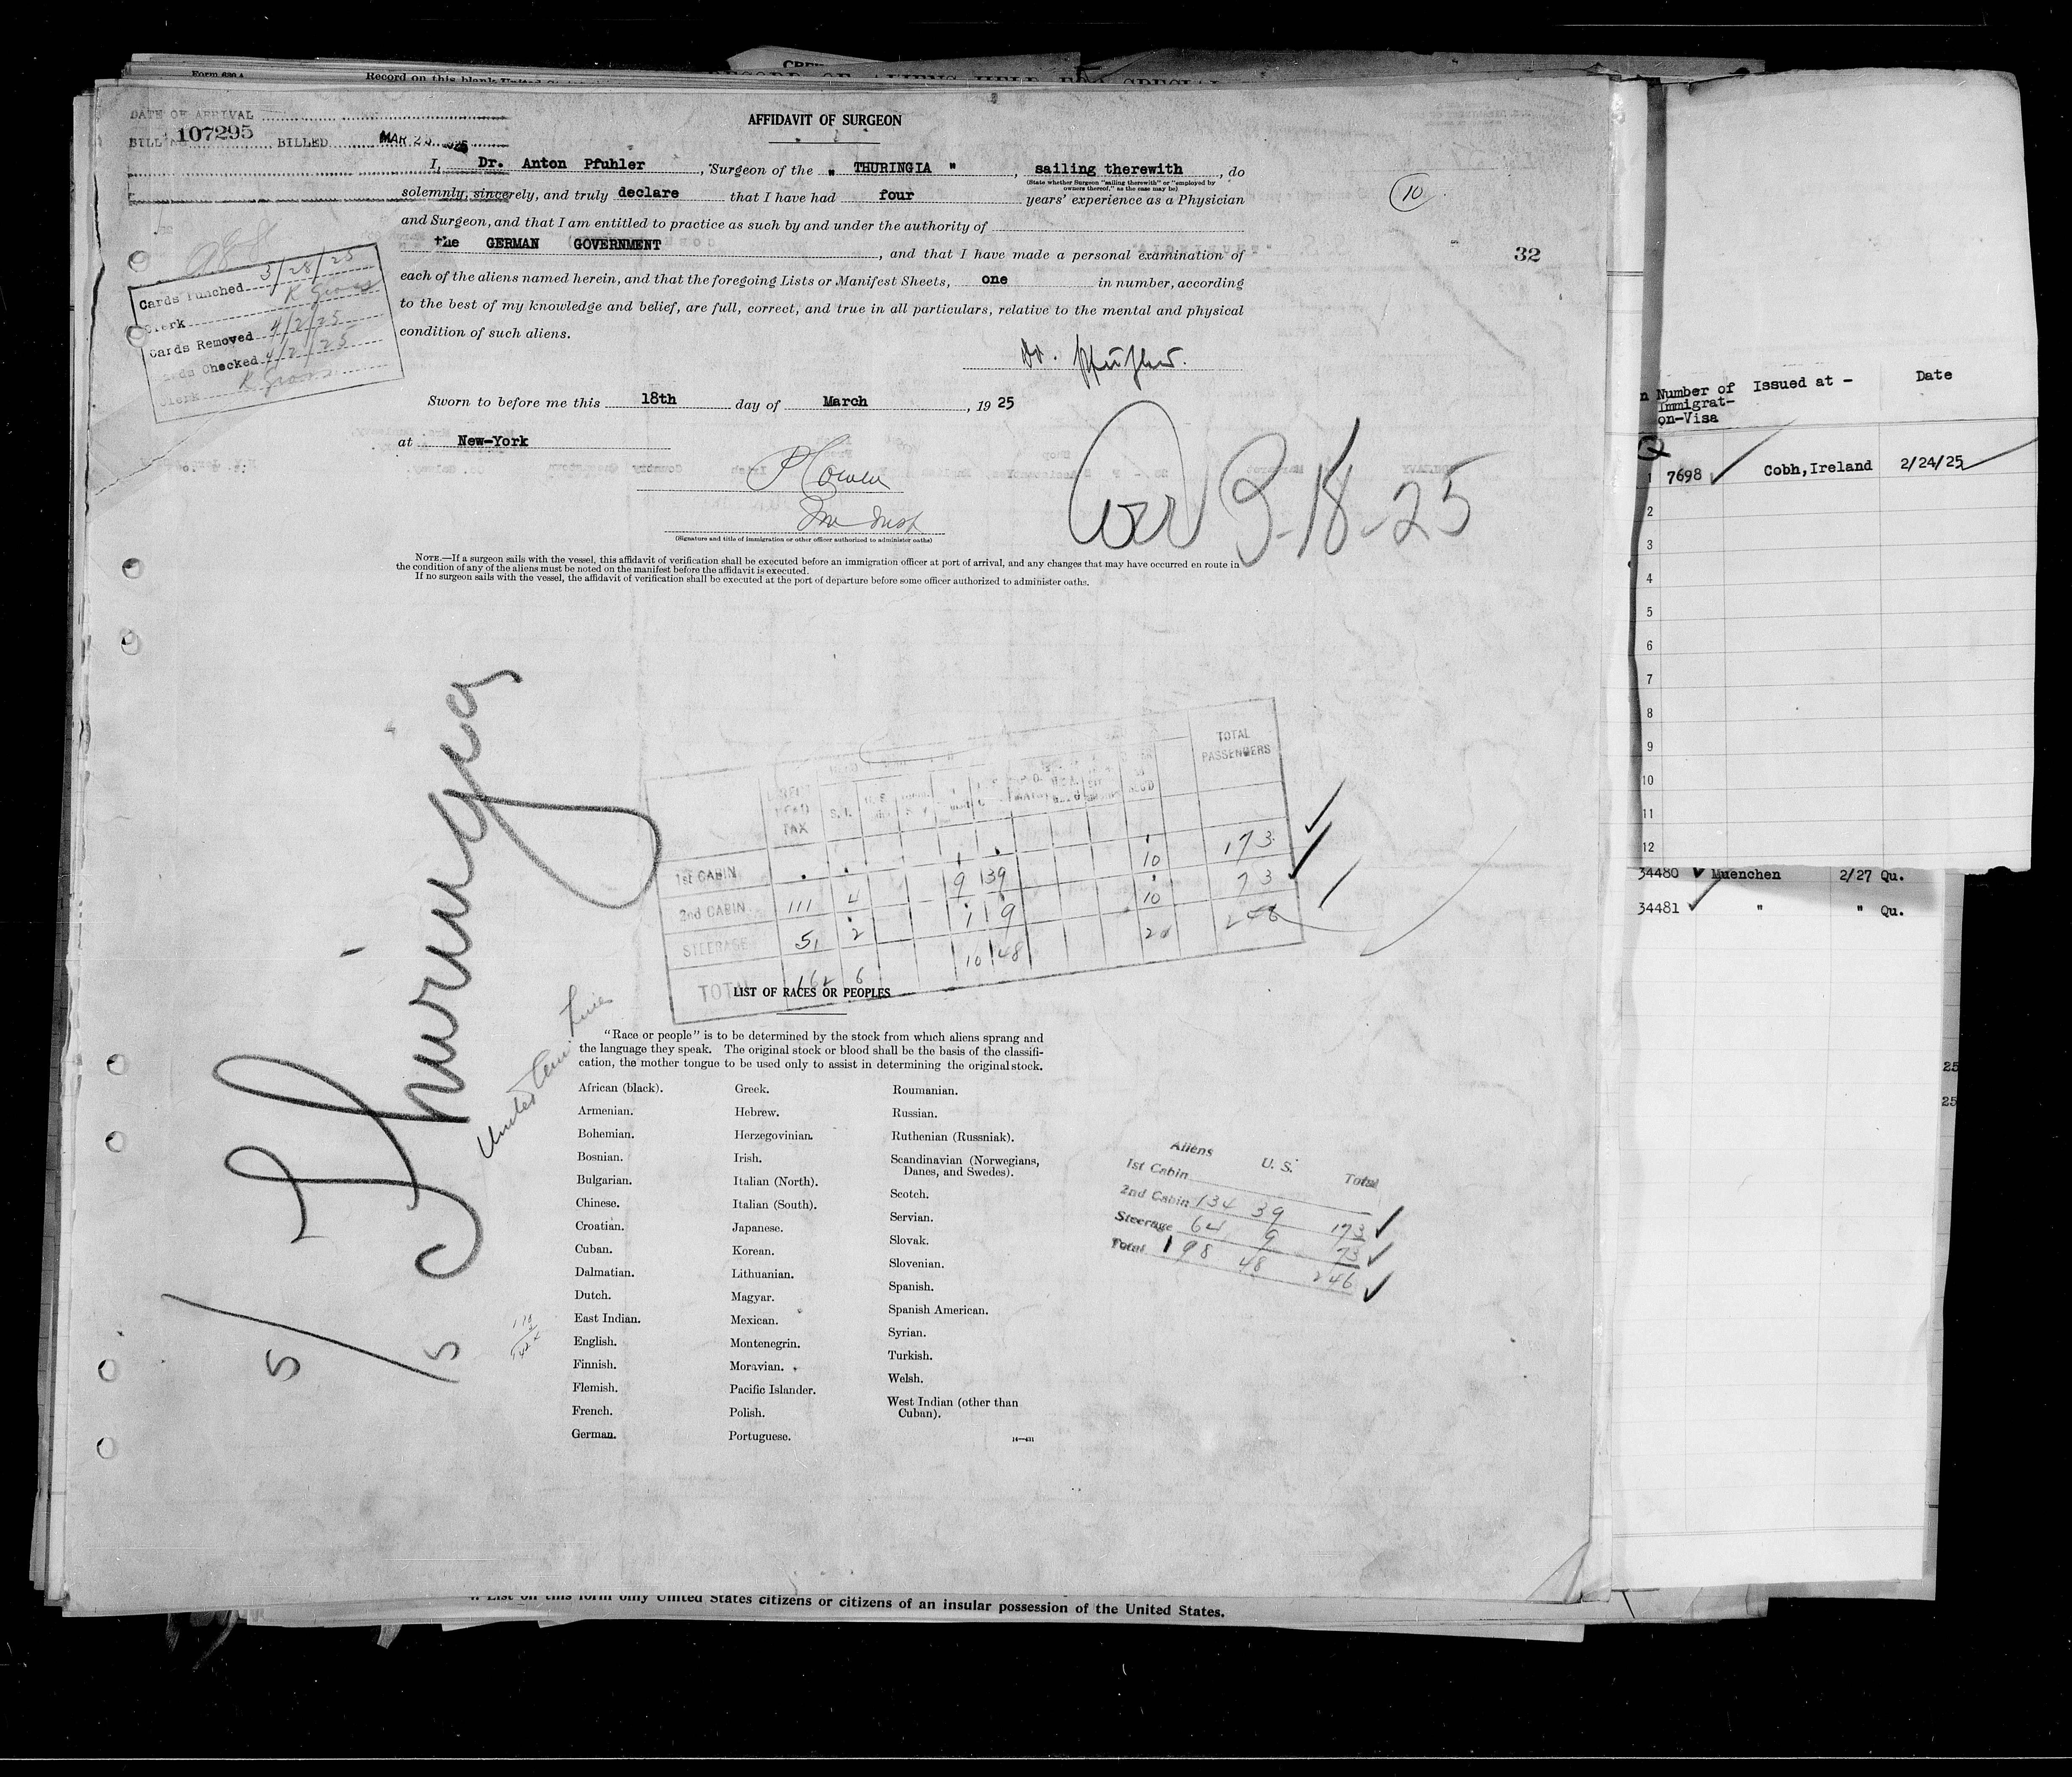 Form 630 A
Record on this blank United
RECORD OF ALIENS HELD FOR SPECIAL
DATE OF ARRIVAL
BILL No. 107295 BILLED MAR 25
AFFIDAVIT OF SURGEON
I, Dr. Anton Pfuhler, Surgeon of the " THURINGIA ", sailing therewith, do
(State whether Surgeon "sailing therewith" or "employed by
owners thereof," as the case may be)
solemnly, sincerely, and truly declare that I have had four years' experience as a Physician
and Surgeon, and that I am entitled to practice as such by and under the authority of
the GERMAN GOVERNMENT, and that I have made a personal examination of
each of the aliens named herein, and that the foregoing Lists or Manifest Sheets, one in number, according
to the best of my knowledge and belief, are full, correct, and true in all particulars, relative to the mental and physical
condition of such aliens.
10
32
Cards Punched 3/28/25
Clerk K Gross
Cards Removed 4/2/25
Cards Checked 4/2/25
Clerk K Gross
Dr. Pfuhler.
Sworn to before me this 18th day of March, 1925
at New-York
Imm Insp
(Signature and title of immigration or other officer authorized to administer oaths)
Arr 3-18-25
NOTE.—If a surgeon sails with the vessel, this affidavit of verification shall be executed before an immigration officer at port of arrival, and any changes that may have occurred en route in
the condition of any of the aliens must be noted on the manifest before the affidavit is executed.
If no surgeon sails with the vessel, the affidavit of verification shall be executed at the port of departure before some officer authorized to administer oaths.
S/S Thuringia
United Am. Lines
HEAD TAX S. I. TOTAL PASSENGERS
1st CABIN
2nd CABIN 111 4 9 39 10 173
STEERAGE 51 2 1 9 10 73
TOTAL 162 6 10 48 20 246
LIST OF RACES OR PEOPLES
"Race or people" is to be determined by the stock from which aliens sprang and
the language they speak. The original stock or blood shall be the basis of the classifi-
cation, the mother tongue to be used only to assist in determining the original stock.
African (black).
Armenian.
Bohemian.
Bosnian.
Bulgarian.
Chinese.
Croatian.
Cuban.
Dalmatian.
Dutch.
East Indian.
English.
Finnish.
Flemish.
French.
German.
Greek.
Hebrew.
Herzegovinian.
Irish.
Italian (North).
Italian (South).
Japanese.
Korean.
Lithuanian.
Magyar.
Mexican.
Montenegrin.
Moravian.
Pacific Islander.
Polish.
Portuguese.
Roumanian.
Russian.
Ruthenian (Russniak).
Scandinavian (Norwegians,
Danes, and Swedes).
Scotch.
Servian.
Slovak.
Slovenian.
Spanish.
Spanish American.
Syrian.
Turkish.
Welsh.
West Indian (other than
Cuban).
14—431
Aliens U. S. Total
1st Cabin
2nd Cabin 134 39 173
Steerage 64 9 73
Total 198 48 246
List on this form only United States citizens or citizens of an insular possession of the United States.
Number of Issued at - Date
Immigrat-
on-Visa
Q
1 7698 Cobh,Ireland 2/24/25
2
3
4
5
6
7
8
9
10
11
12
34480 Muenchen 2/27 Qu.
34481 " " Qu.
25
25